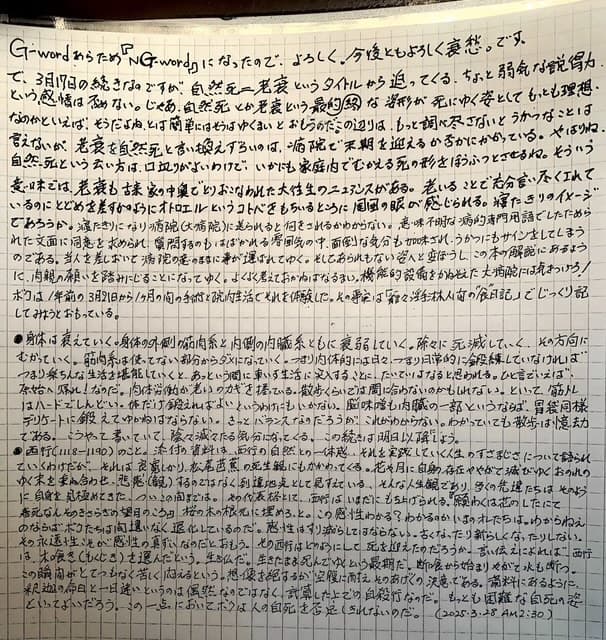 G-wordあらため『NG-word』になったので、よろしく。今後ともよろしく哀愁。です。
で、3月17日の続きなのですが、自然死=老衰というタイトルから迫ってくる、ちょっと弱気な説得力、
という感情は否めない。じゃあ、自然死とか老衰という最終的な姿形が死にゆく姿としてもっとも理想
なのかといえば、そうだよね、とは簡単にはそうはゆくまいとおもうのだ。この辺りは、もっと調べ尽さないとうかつなことは
言えないが、老衰を自然死と言い換えするのは、病院で末期を迎えるか否かにかかっている。やはりね、
自然死という云い方は、口辺りがよいわけで、いかにも家庭内でむかえる死の形をほうふつとさせるね。そういう
意味では、老衰も古来家の中奥でとりおこなわれた大往生のニュアンスがある。老いることで充分言い尽くされて
いるのにとどめを差すかのようにオトロエルというコトバをもちいるところに周囲の眼が感じられる。寝たきりのイメージ
であろうか。寝たきりになり病院(大病院)に送られると何をされるかわからない。意味不明な病的専門用語でしたためら
れた文面に同意を求められ、質問するのもはばかれる雰囲気の中、面倒な気分も加味され、うかつにもサインをしてしまう
のである。当人を差しおいて病院の意のままに事が運ばれてゆく。そしてあられもない姿へと変ぼうし、この本の解説にあるよう
に、肉親の願いを踏みにじることになってゆく。よくよく考えておかねばなるまい。機能的設備をかねそなえた大病院には気をつけろ!
ボクは1年前の3月21日から1ヶ月の間の手術と院内生活でそれを体験した。その事実は「 日記」でじっくり記
してみようとおもっている。
●身体は衰えていく。身体の外側の筋肉系と内側の内臓系ともに衰弱していく。除々に死滅していく、その方向に
むかっていく。筋肉系は使ってない部分からダメになっていく。つまり肉体的には日々、つまり日常的に全般練していなければ
つまり楽ちんな生活を堪能していくと、あっという間に車いす生活に突入することに、たいていはなると思われる。ひと言でいえば、
原始へ帰れ!なのだ。肉体労働が老いのカギを握っている。散歩くらいでは間に合わないのかもしれない。といって、筋トレ
はハードでしんどい。体だけ鍛えればよいというわけにもいかない。脳味噌も内臓の一部というならば、胃袋同様
デリケートに鍛えてゆかねばならない。きっとバランスなのだろうが、これがわからない。わかっていても散歩は億劫
である。こうやって書いていて、陰々滅々たる気分になってくる。この続きは明日以降にしよう。
●西行(1118-1190)のこと。添付の資料は、西行の自然との一体感、それを実践していく人生のすさまじさについて語られ
ていくわけだが、それは良寛しかり、松尾芭蕉の死生観にもかかわってくる。花や月に自身の存在ややがて滅びゆくおのれの
ゆく末を重ね合わせ、悲感(観)するのではなく到達地点として見すえている、そんな人生観であり、多くの先達たちはそのよう
に自身を見極めてきた、ついこの間までは。その代表格として、西行はいまだにもち上げられる。「願わくは花のしたにて
春死なんそのきさらぎの望月のころ」。桜の木の根元に埋めろ、と。この感性わかる?わかるのかいまのオレたちは。わからねえ
のならば、ボクたちは間違いなく退化しているのだ。感性はすり減らしてはならない。古くなったり新らしくなったりしない、
その永遠性こそが感性の真ずいなのだとおもう。その西行はどのようにして死を迎えたのだろうか。言い伝えによれば、西行
は、木喰き(もくじき)を選んだという。生き仏だ。生きたまま死んでゆくという最期だ。断食から始まりやがて水も断つ。
この瞬間がとてつもなく苦しく悶えるという。想像を絶するが空腹に耐え、そのあげくの決意である。資料にあるように、
釈迦の命日と一日違いというのは偶然なのではなく、計算した上での自殺行なのだ。もっとも困難な自死の姿
といってよいだろう。この一点においてボクは人の自死を否定しきれないのだ。 (2025・3・28 AM2:30)